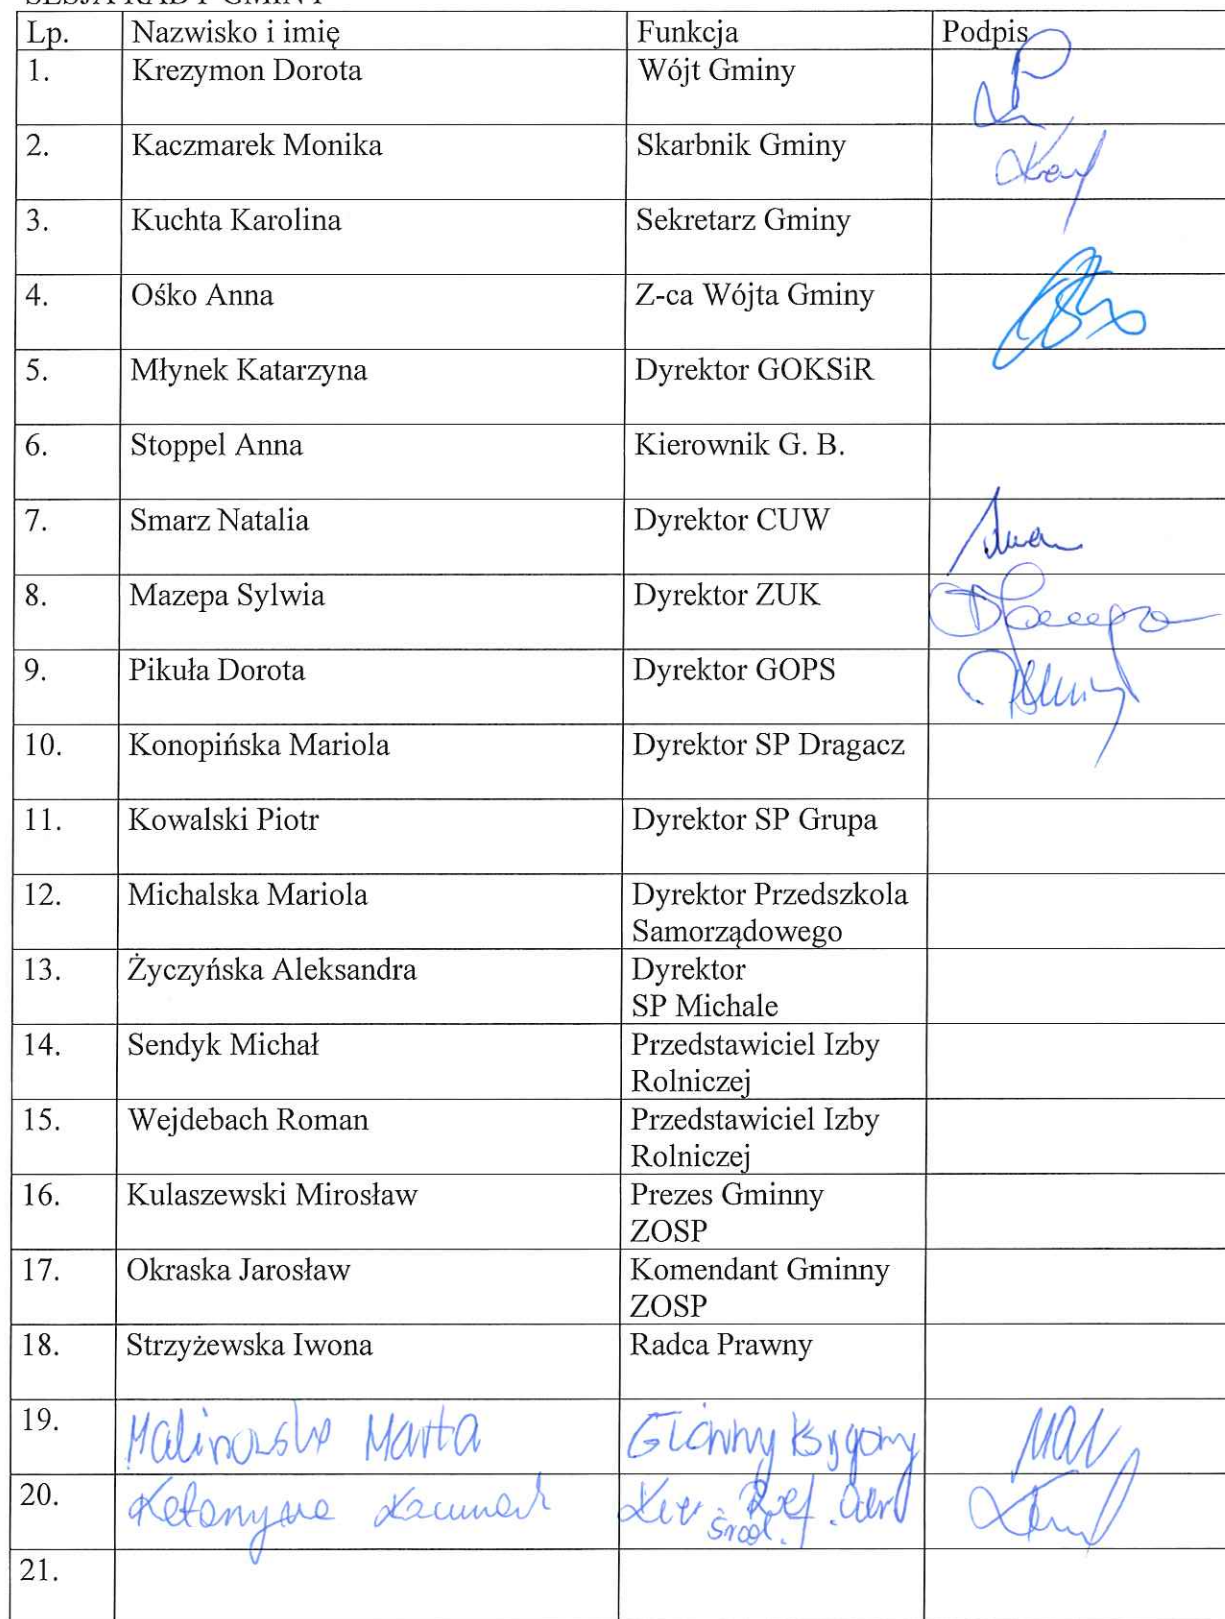 SESJA RADY GMINY
Lp. Nazwisko i imię Funkcja Podpis
1. Krezymon Dorota Wójt Gminy
2. Kaczmarek Monika Skarbnik Gminy
3. Kuchta Karolina Sekretarz Gminy
4. Ośko Anna Z-ca Wójta Gminy
5. Młynek Katarzyna Dyrektor GOKSiR
6. Stoppel Anna Kierownik G. B.
7. Smarz Natalia Dyrektor CUW
8. Mazepa Sylwia Dyrektor ZUK
9. Pikuła Dorota Dyrektor GOPS
10. Konopińska Mariola Dyrektor SP Dragacz
11. Kowalski Piotr Dyrektor SP Grupa
12. Michalska Mariola Dyrektor Przedszkola
Samorządowego
13. Życzyńska Aleksandra Dyrektor
SP Michale
14. Sendyk Michał Przedstawiciel Izby
Rolniczej
15. Wejdebach Roman Przedstawiciel Izby
Rolniczej
16. Kulaszewski Mirosław Prezes Gminny
ZOSP
17. Okraska Jarosław Komendant Gminny
ZOSP
18. Strzyżewska Iwona Radca Prawny
19. Malinowska Marta Główny Księgowy
20. Katarzyna Kaczmarek Kier. Ref.
Środ.
21.